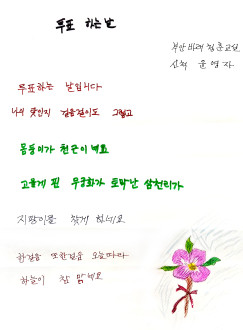 투표 하는 날
부안 바래 청춘교실
신혁 윤영자
투표하는 날입니다
나의 몇인지 걸음걸이도 그렇고
몸둥이가 천근이네요
고을게 핀 무궁화가 토막난 삼천리가
지팡이를 찾게 하네요
한걸음 또한걸음 오늘따라
하늘이 참 맑네요